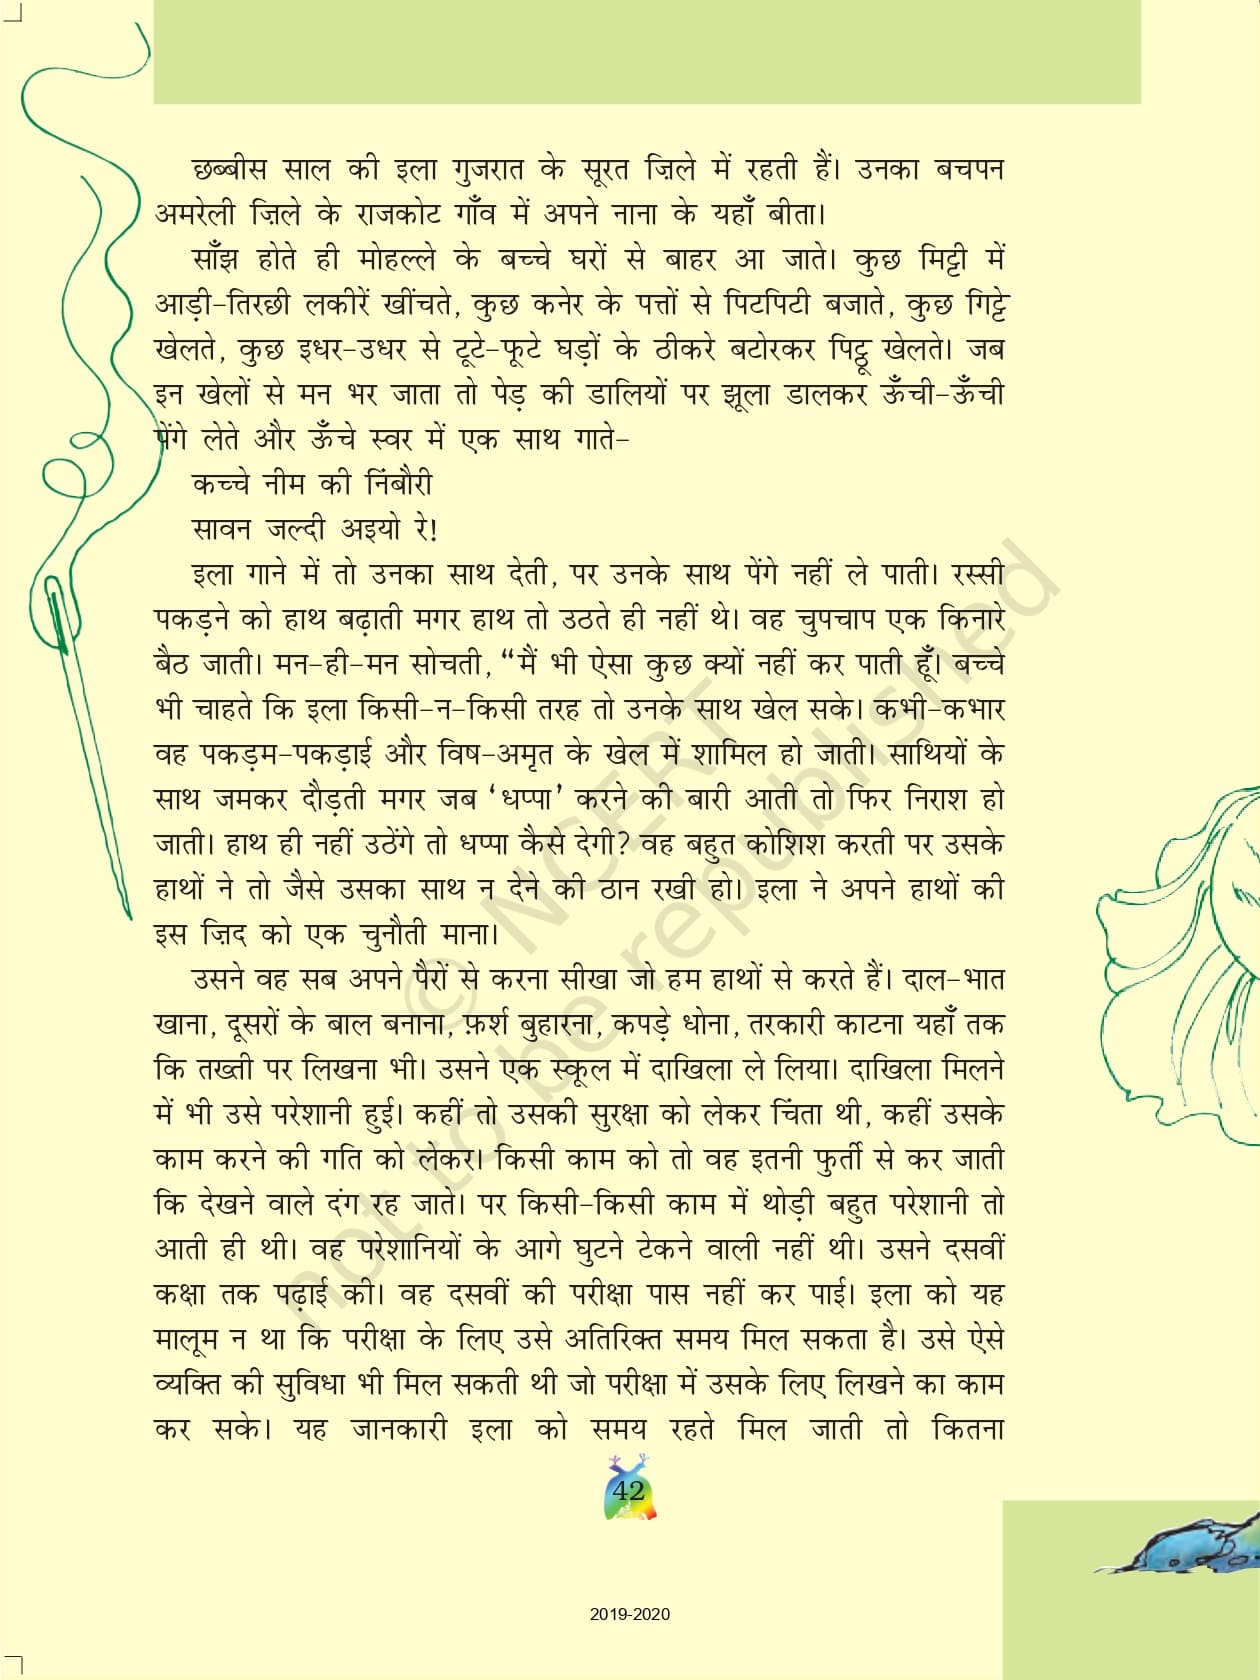 छब्बीस साल की इला गुजरात के सूरत ज़िले में रहती हैं। उनका बचपन
अमरेली ज़िले के राजकोट गाँव में अपने नाना के यहाँ बीता।
साँझ होते ही मोहल्ले के बच्चे घरों से बाहर आ जाते। कुछ मिट्टी में
आड़ी-तिरछी लकीरें खींचते, कुछ कनेर के पत्तों से पिटपिटी बजाते, कुछ गिट्टे
खेलते, कुछ इधर-उधर से टूटे-फूटे घड़ों के ठीकरे बटोरकर पिट्ठू खेलते। जब
इन खेलों से मन भर जाता तो पेड़ की डालियों पर झूला डालकर ऊँची-ऊँची
पेंगे लेते और ऊँचे स्वर में एक साथ गाते-
कच्चे नीम की निंबौरी
सावन जल्दी अइयो रे!
इला गाने में तो उनका साथ देती, पर उनके साथ पेंगे नहीं ले पाती। रस्सी
पकड़ने को हाथ बढ़ाती मगर हाथ तो उठते ही नहीं थे। वह चुपचाप एक किनारे
बैठ जाती। मन-ही-मन सोचती, “मैं भी ऐसा कुछ क्यों नहीं कर पाती हूँ। बच्चे
भी चाहते कि इला किसी-न-किसी तरह तो उनके साथ खेल सके। कभी-कभार
वह पकड़म-पकड़ाई और विष-अमृत के खेल में शामिल हो जाती। साथियों के
साथ जमकर दौड़ती मगर जब ‘धप्पा’ करने की बारी आती तो फिर निराश हो
जाती। हाथ ही नहीं उठेंगे तो धप्पा कैसे देगी? वह बहुत कोशिश करती पर उसके
हाथों ने तो जैसे उसका साथ न देने की ठान रखी हो। इला ने अपने हाथों की
इस ज़िद को एक चुनौती माना।
उसने वह सब अपने पैरों से करना सीखा जो हम हाथों से करते हैं। दाल-भात
खाना, दूसरों के बाल बनाना, फ़र्श बुहारना, कपड़े धोना, तरकारी काटना यहाँ तक
कि तख्ती पर लिखना भी। उसने एक स्कूल में दाखिला ले लिया। दाखिला मिलने
में भी उसे परेशानी हुई। कहीं तो उसकी सुरक्षा को लेकर चिंता थी, कहीं उसके
काम करने की गति को लेकर। किसी काम को तो वह इतनी फुर्ती से कर जाती
कि देखने वाले दंग रह जाते। पर किसी-किसी काम में थोड़ी बहुत परेशानी तो
आती ही थी। वह परेशानियों के आगे घुटने टेकने वाली नहीं थी। उसने दसवीं
कक्षा तक पढ़ाई की। वह दसवीं की परीक्षा पास नहीं कर पाई। इला को यह
मालूम न था कि परीक्षा के लिए उसे अतिरिक्त समय मिल सकता है। उसे ऐसे
व्यक्ति की सुविधा भी मिल सकती थी जो परीक्षा में उसके लिए लिखने का काम
कर सके। यह जानकारी इला को समय रहते मिल जाती तो कितना
© NCERT
not to be republished
42
2019-2020